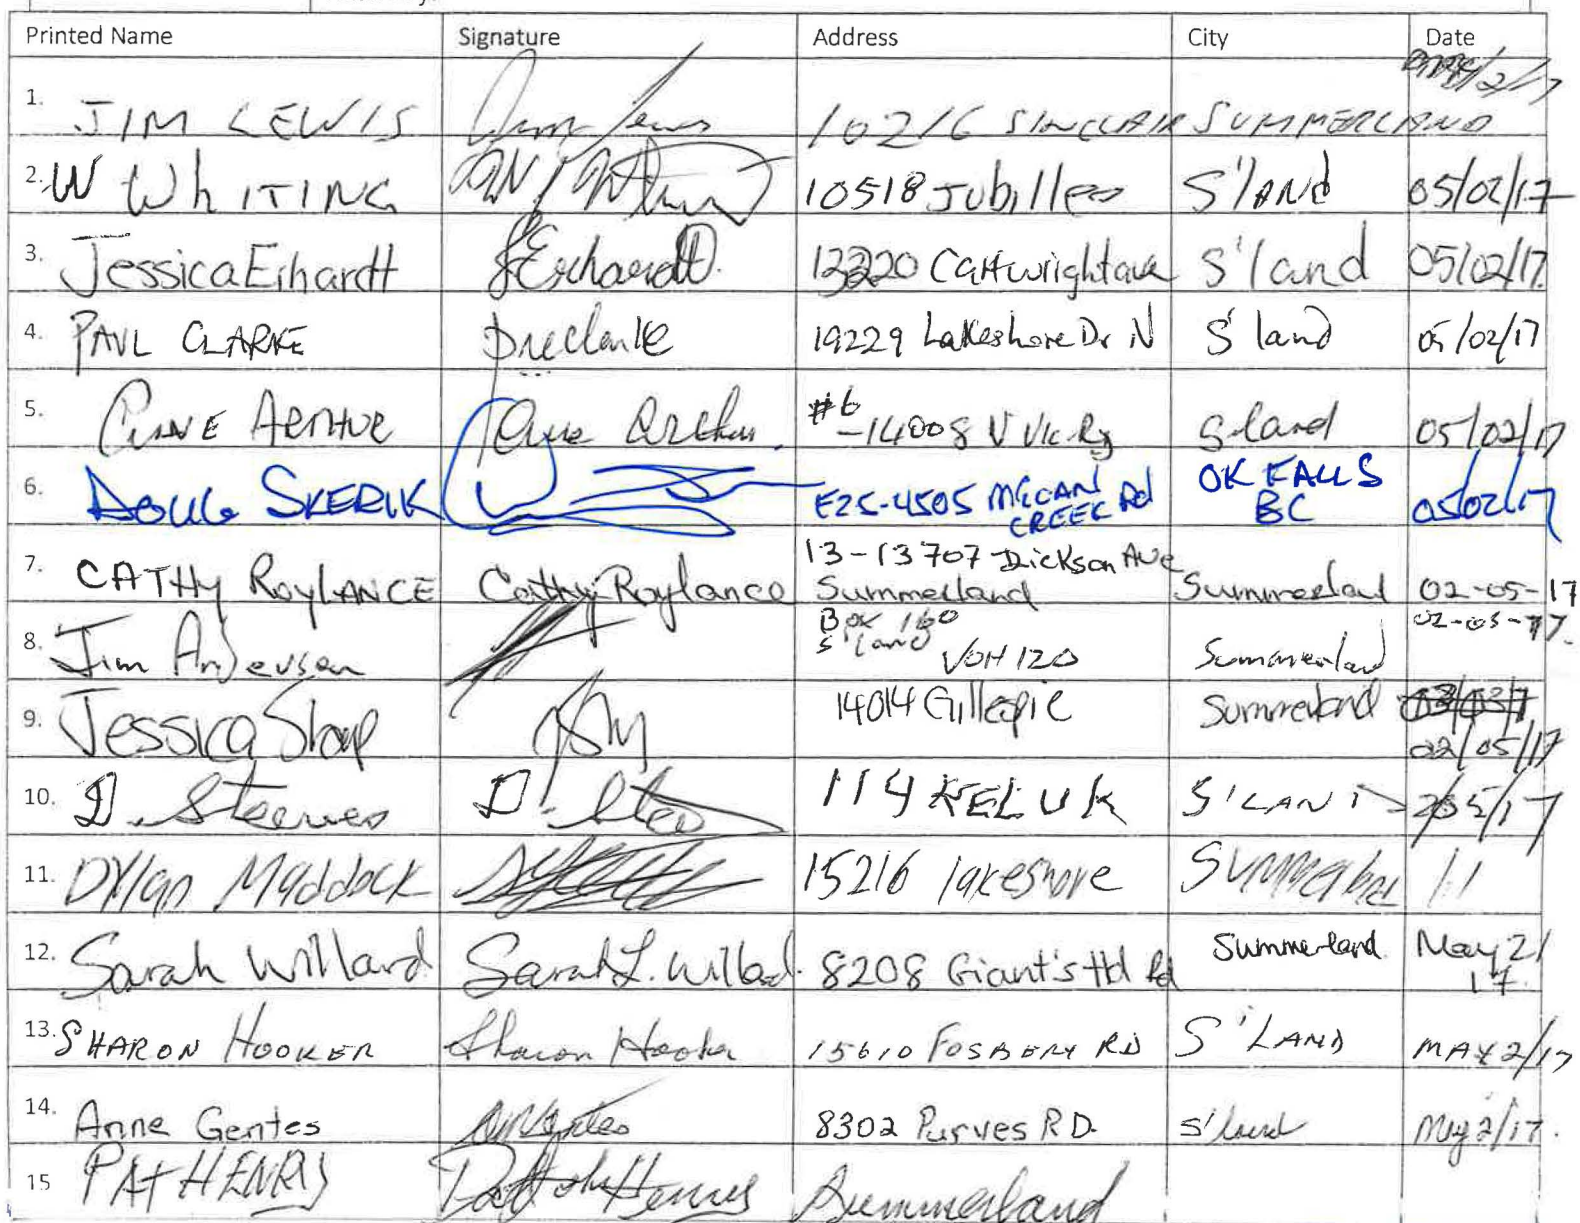 Printed Name Signature Address City Date
1. JIM LEWIS 10216 SINCLAIR SUMMERLAND /2/17
2. W WhITING 10518 Jubillee S'lAND 05/02/17
3. Jessica Erhardt JErhardt 13220 Cartwright ave S'land 05/02/17
4. PAUL CLARKE 19229 Lakeshore Dr N S'land 05/02/17
5. #6 -14008 S-land 05/02/17
6. DOUG SKERIK E25-4505 MCCAN CREEK Rd OK FALLS BC 05/02/17
7. CATHy RoyLANCE Cathy Roylance 13-13707 Dickson AVE Summerland Summerland 02-05-17
8. Jim Andersen Box 160 S'land V0H 1Z0 Summerland 02-05-17.
9. Jessica 14014 Gillespie Summerland 02/05/17
10. D. Steeves D. 114 S'LAND 2/05/17
11. Dylan Maddock 15216 lakeshore Summerland 11
12. Sarah Willard Sarah L. Willard. 8208 Giant's Hd Rd Summerland. May 2/ 17.
13. SHARON HOOKER Sharon Hooker 15610 FOSBERY RD S'LAND MAY 2/17
14. Anne Gentes 8302 Purves RD. S'land May 2/17.
15 PAT HENRY Summerland